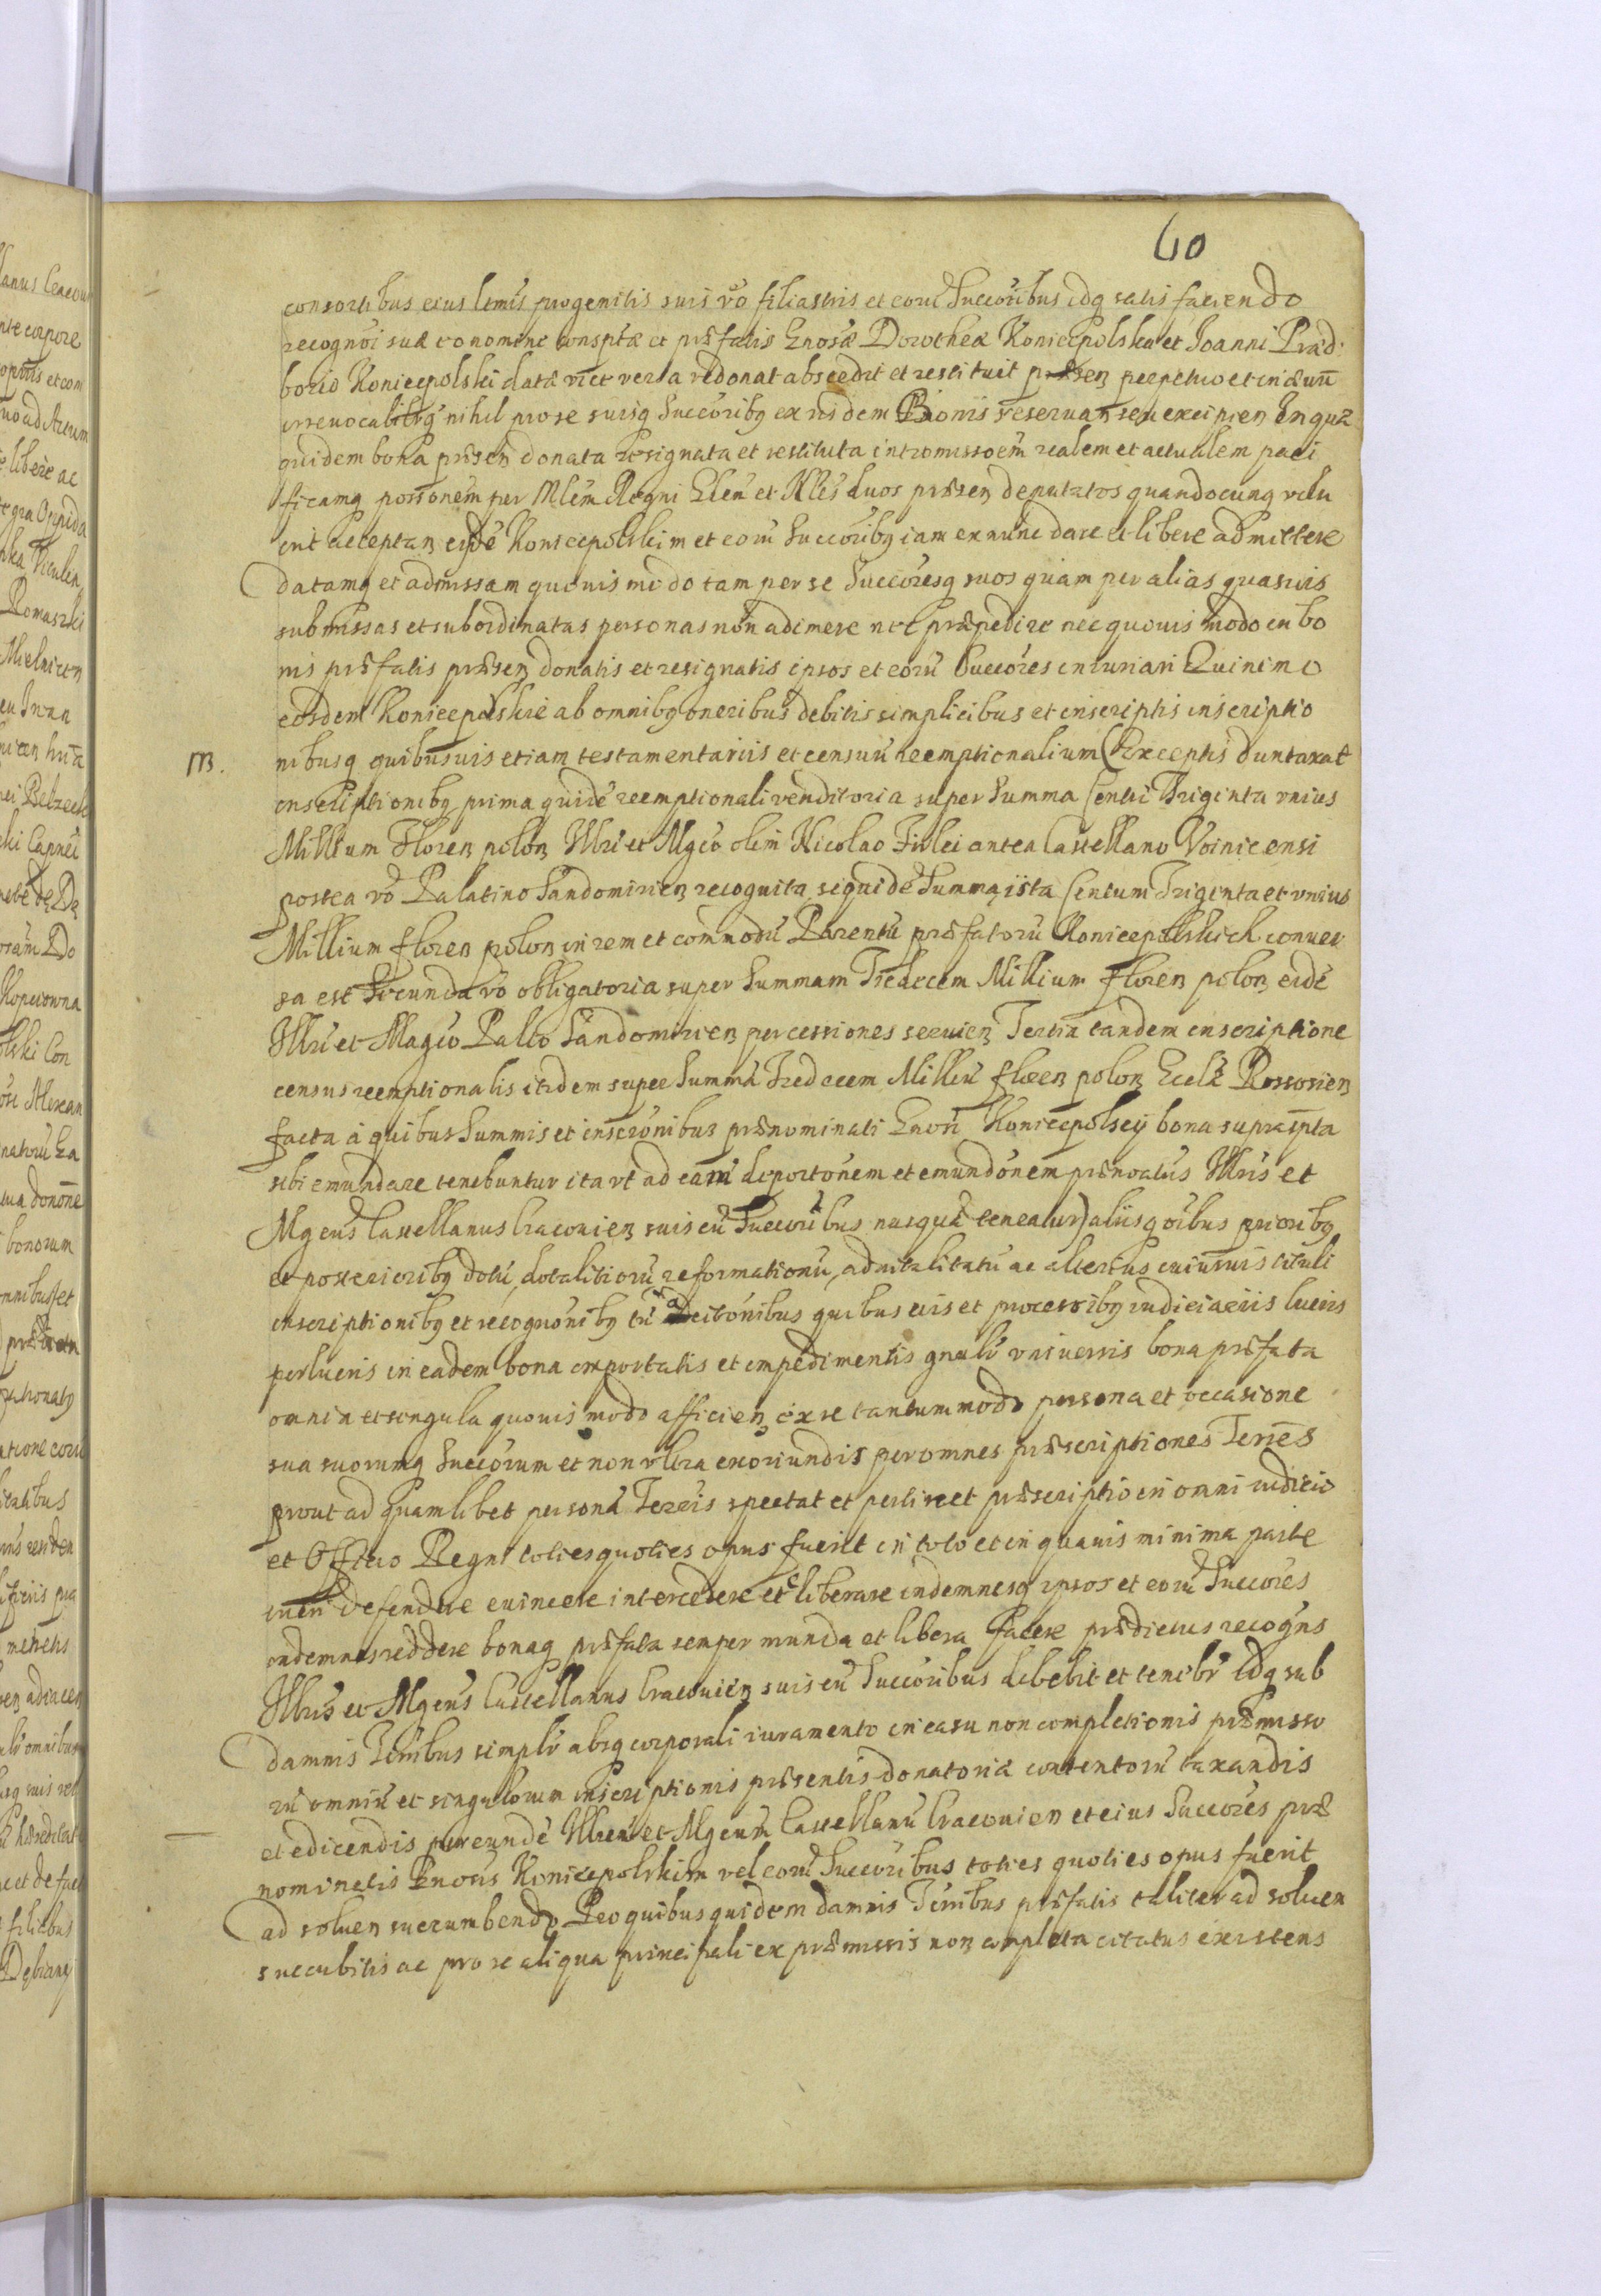 60
consortibus eius ltmis progenitis suis vo filiastris et eorũ Succoribus idq satis faciendo
recognoi suæ eo nomine consptæ et præfatis Gnosæ Dorotheæ Koniecpolska et Joanni Præd
borio Koniecpolski datæ riet versa redonat abscedit et restituit præsen perpetuo et in æuũ
irreuocabilitrq nihil pro se suisq Succoribq ex iisdem Bonis reseruan seu excipien In quæ
quidem bona præsen donata resignata et restituta intromissoem realem et actualem paci
ficamq possonem per Mlem Regni Glem et Nles duos præsen deputatos quandocunq volu
erit acceptan eisdē Koniecpolskim et eorũ Succoribq iam ex nunc dare et libere admittere
datamq et admissam quouis modo tam per se Succoresq suos quam per alias quasuis
submissas et subordinatas personas non adimere nec præpedire nec quouis modo in bo
nis præfatis præsen donatis et resignatis ipsos et eorũ Succores iniuriari Quinimo
eosdem Koniecpolskie ab omnibq oneribus debitis simplicibus et inscriptis inscriptio
m. nibusq quibusuis etiam testamentariis et censuũ reemptionalium (Exceptis duntaxat
inscriptionibq prima quidē reemptionali venditoria super Summa Centũ Triginta vnius
Millium Floren polon Illri et Mgco olim Nicolao Firlei antea Castellano Voinicensi
postea vo Palatino Sandomirien recognita siquidē Summa ista Centum Triginta et vnius
Millium floren polon in rem et commodũ Parentũ præfatorũ Koniecpolskich conuer
sa est Secunda vo obligatoria super Summam Tredecem Millium floren polon eidē
Illri et Magco Palto Sandomirien per cessiones seruien Tertia tandem inscriptione
census reemptionalis itidem super Summā Tredecem Milliũ floren polon Eccłæ Rossosien
facta a quibus Summis et inscronibus prænominati Gnosi Koniecpolscÿ bona suprascpta
sibi emundare tenebuntur ita vt ad eam deportonem et emundonem prænoatus Illris et
Mgcus Castellanus Cracouien suis cũ Succoribus nusquā teneatur) aliisq oibus prioribq
et posterioribq dotũ, dotalitiorũ reformationũ, aduitalitatũ ac alterius cuiusuis tituli
inscriptionibq et recognonibq tũ a Decibonibus quibus euis et processibq iudiciariis lucris
perlucris in eadem bona importatis et impedimentis gnalr vniuersis bona præfata
omnia et singula quouis modo afficien ex se tantummodo persona et occasione
sua suorumq Succorum et non vltra exoriundis per omnes præscriptiones Terres
prout ad quamlibet personā Terris spectat et pertinet præscriptio in omni iudicio
et Officio Regni toties quoties opus fuerit in toto et in quauis minima parte
tueri defendere euincere intercedere et eliberare indemnesq ipsos et eorũ Succores
indemnes reddere bonaq præfata semper munda et libera facere prædictus recogns
Illris et Mgcus Castellanus Cracouien suis cũ Succoribus debebit et tenebr Idq sub
damnis Terribus simplr absq corporali iuramento in casu non completionis præmisso
rũ omniũ et singulorum inscriptionis præsentis donatoriæ contentorũ taxandis
et edicendis per eundē Illrem et Mgcum Castellanũ Cracouien et eius Succores præ
nominatis Gnosis Koniecpolskim vel eorũ Succoribus toties quoties opus fuerit
ad soluen succumbendo Pro quibus quidem damnis Terribus præfatis taliter ad soluen
succubitis ac pro re aliqua principali ex præmissis non completa citatus existens